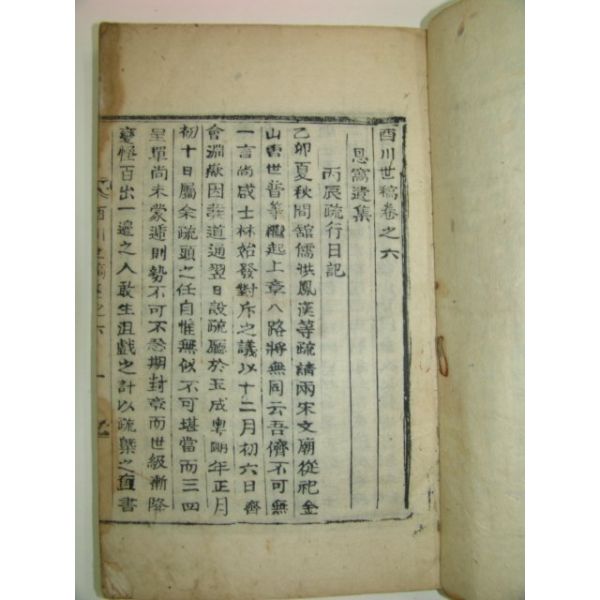 酉川世稿卷之六
思窩遺集
丙辰疏行日記
乙卯夏秋間舘儒洪鳳漢等疏請兩宋文廟從祀金
山 世 等 起上章八路將無同云吾儕不可無
一言尚咸士林始發對斥之議以十二月初六日齊
會 因 道通翌日設疏廳於玉成粤明年正月
初十日屬余疏頭之任自惟無似不可堪當而三四
呈單尚未蒙遞則勢不可不 期封章而世級漸降
 百出一邊之人敢生沮戲之計以疏槩之 書
酉川世稿卷之六
一